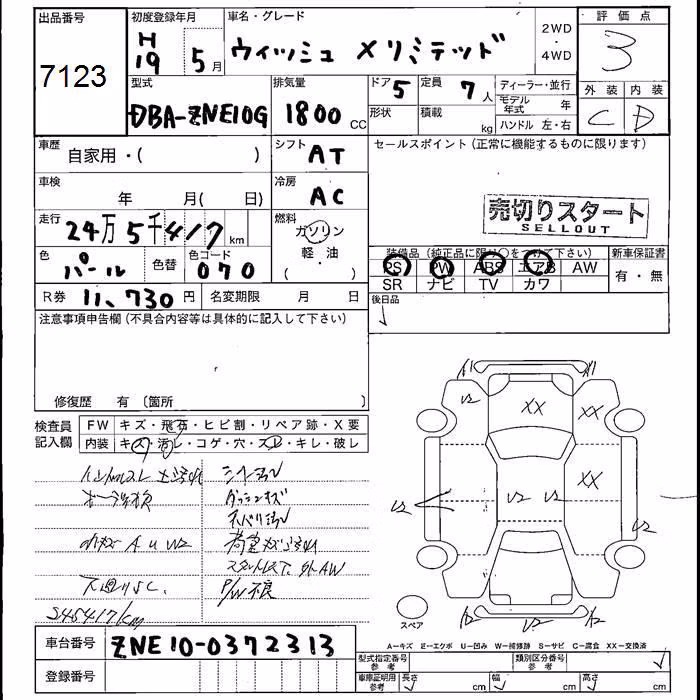 出品番号 初度登録年月 車名・グレード 評価点
7123 H19 5月 ウィッシュ Xリミテッド 2WD・4WD 3
型式 排気量 ドア 5 定員 7人 ディーラー・並行 外装 内装
DBA-ZNE10G 1800 CC 形状 積載 kg モデル年式 年 C D
ハンドル 左・右
車歴 自家用・( ) シフト AT セールスポイント(正常に機能するものに限ります)
車検 年 月( 日) 冷房 AC
売切りスタート
SELLOUT
走行 24万5千417km 燃料 ガソリン 軽・油 ( )
色 パール 色替 色コード 070
装備品(純正品に限り○をつけて下さい) 新車保証書
PS PW ABS エアB AW 有・無
SR ナビ TV カワ
R券 11,730円 名変期限 月 日 後日品
注意事項申告欄(不具合内容等は具体的に記入して下さい)
修復歴 有(箇所
検査員記入欄 FW キズ・飛石・ヒビ割・リペア跡・X要
内装 キズ・汚レ・コゲ・穴・スレ・キレ・破レ
シート汚レ
ダッシュキズ
A U W2
外AW
下廻りSC. P/W不良
245417km
XX XX
XX
V2 V2 V2
スペア
車台番号 ZNE10-0372313
A−キズ E−エクボ U−凹み W−補修跡 S−サビ C−腐食 XX−交換済
登録番号
型式指定番号 参考 類別区分番号 参考
車庫証明用 参考 長さ cm 幅 cm 高さ cm